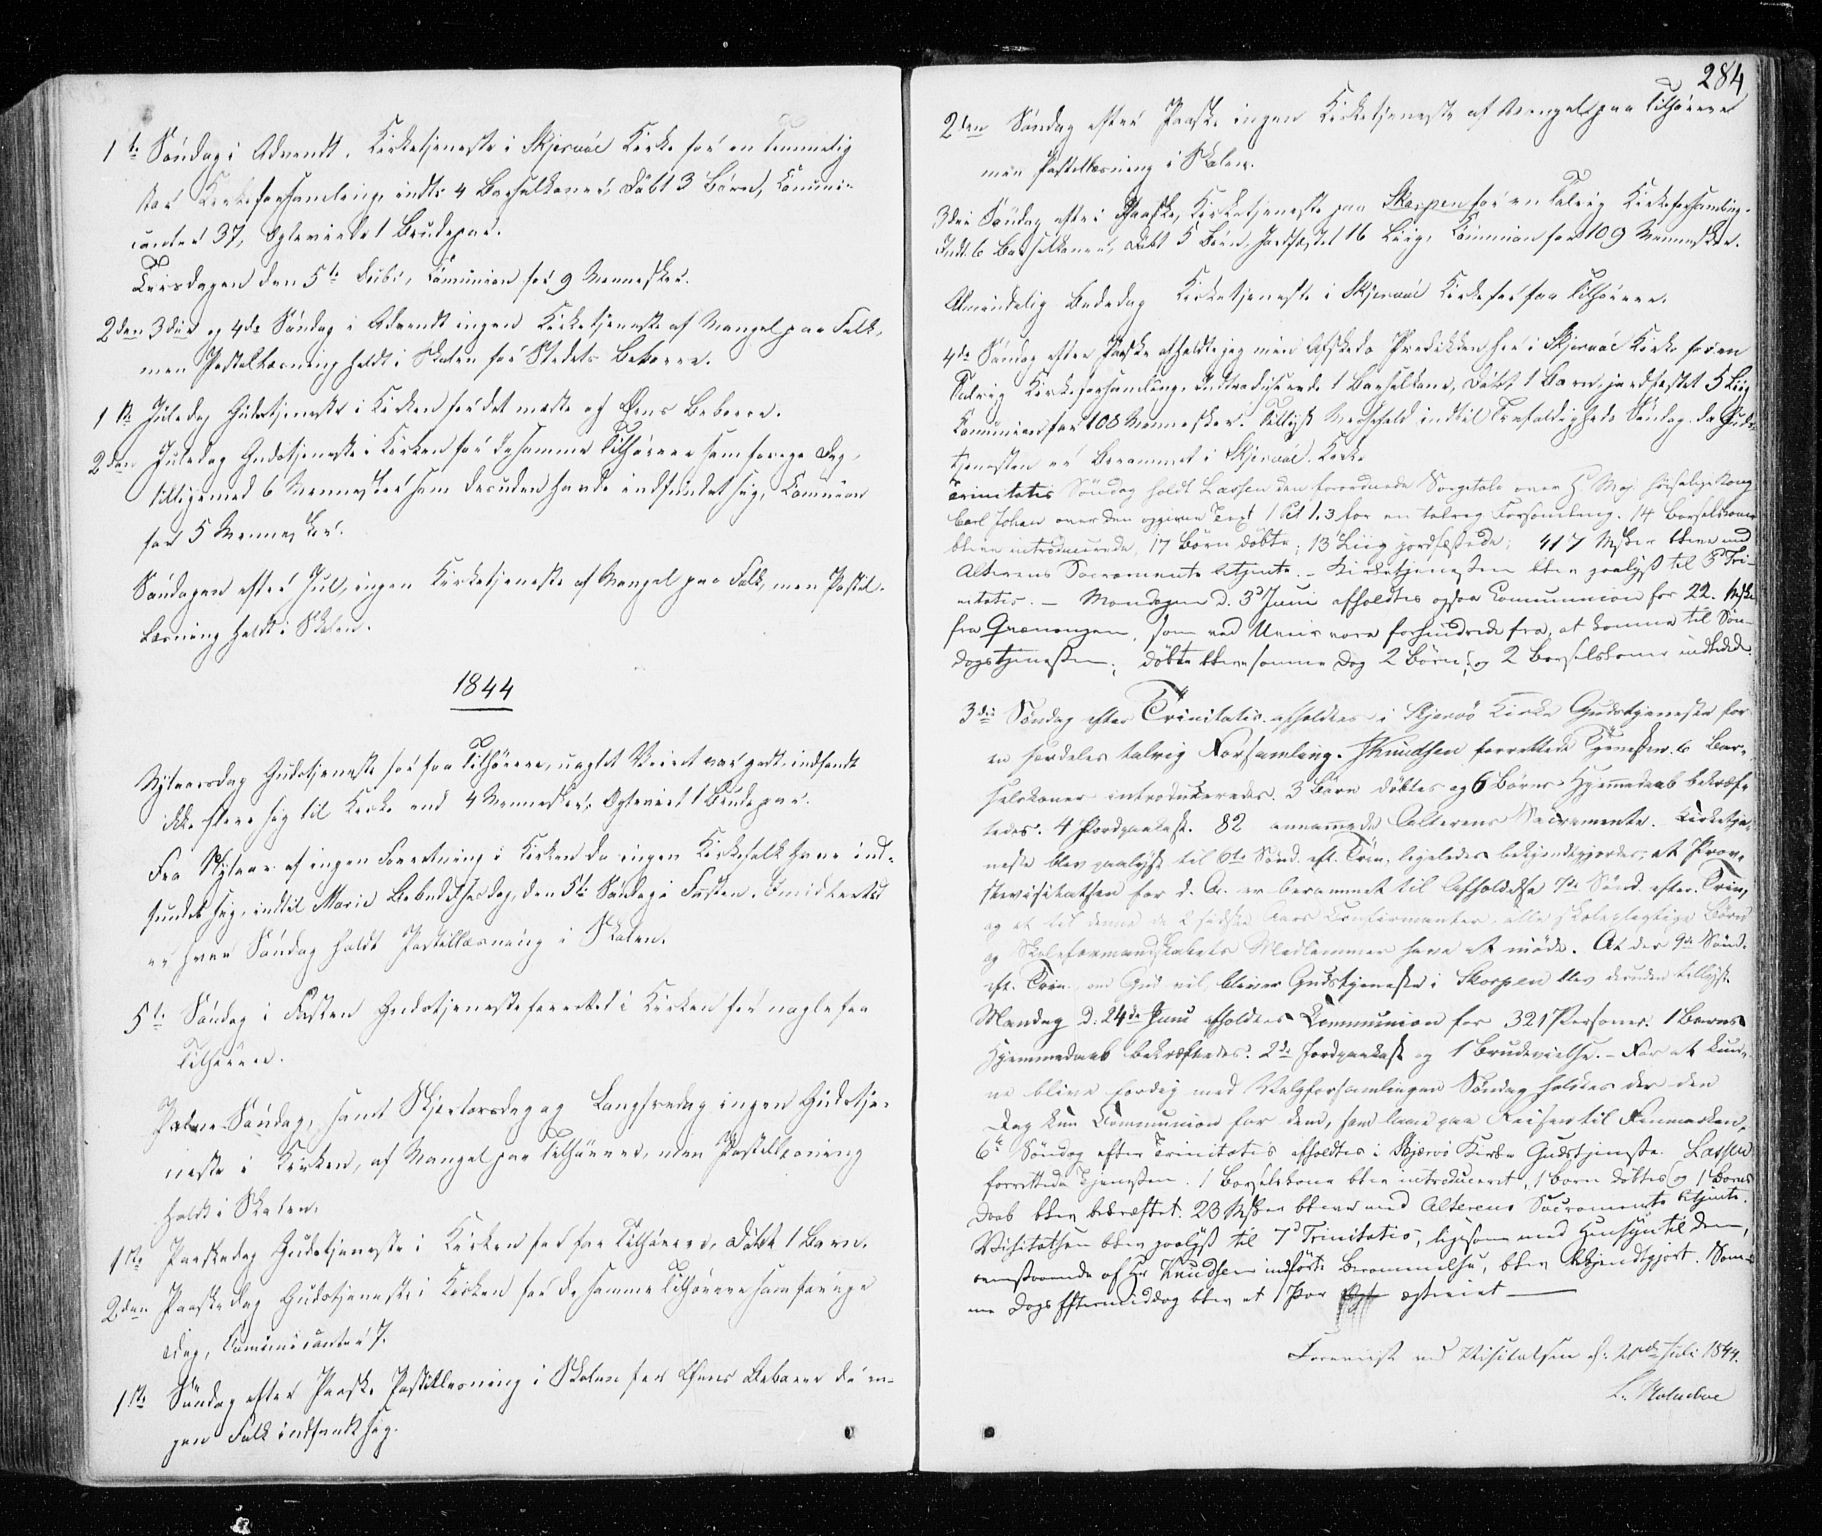 1te Søndag i Advendt. Kirketjeneste i Skjervøe Kirke for en temmelig
stor Kirkeforsamling, indtr: 4 Barselkoner, døbt 3 Børn, Comuni-
canter 37, Egteviede 1 Brudepar.
Tirsdagen den 5te Decbr, Comunion for 9 Mennesker.
2den 3die og 4de Søndag i Advendt ingen Kirketjeneste af Mangel paa Folk,
men Postillæsning holdt i Skolen for Stedets Beboere.
1ste Juledag Gudstjeneste i Kirken for det meste af Øens Beboere.
2den Juledag Gudstjeneste i Kirken for de samme Tilhørere som forrige Dag,
tilligemed 6 Mennesker som desuden havde indfundet sig, Comunion
for 5 Mennesker.
Søndagen efter Jul, ingen Kirketjeneste af Mangel paa Folk, men Postil-
læsning holdt i Skolen.
1844
Nytaarsdag Gudstjeneste for faa Tilhørere, uagtet Veiret var godt, indfandt
ikke flere sig til Kirke end 4 Mennesker, Egteviet 1 Brudepar.
Fra Nytaar af ingen Forretning i Kirken da ingen Kirkefolk have ind-
fundet sig, indtil Marie Bebudelsesdag, den 5te Søndag i Fasten. Imidlertid
er hver Søndag holdt Postillæsning i Skolen.
5te Søndag i Fasten Gudstjeneste forrettet i Kirken for nogle faa
Tilhørere.
Palme Søndag, samt Skjertorsdag og Langfredag ingen Gudstje-
neste i Kirken, af Mangel paa Tilhørere, men Postillæsning
holdt i Skolen.
1ste Paaskedag Gudstjeneste i Kirken for faa Tilhørere, døbt 1 Barn.
2den Paaskedag Gudstjeneste i Kirken for de samme Tilhørere som forrige
Dag, Comunicanter 7.
1ste Søndag efter Paaske Postillæsning i Skolen for Øens Beboere da in-
gen Folk indfandt sig.
284
2den Søndag efter Paaske ingen Kirketjeneste af Mangel paa Tilhørere
men Postillæsning i Skolen.
3die Søndag efter Paaske, Kirketjeneste paa Skorpen for en talrig Kirkeforsamling.
Indt: 6 Barselkoner, døbt 5 Børn, Jordfæstet 16 Liig, Comunion for 109 Mennesker.
Almindelig Bededag Kirketjeneste i Skjervøe Kirke for faa Tilhørere.
4de Søndag efter Paaske afholdte jeg min Afskeds Prediken her i Skjervøe Kirke for en
Talrig Kirkeforsamling. Indtroduserede 1 Barselkone, døbt 1 Barn, jordfæstet 5 Liig
Comunion for 108 Mennesker. Tillyst Messefald indtil Trefoldigheds Søndag da Guds-
tjenesten er berammet i Skjervøe Kirke
Trinitatis Søndag holdt Lassen den forordnede Sørgetale over H. Maj. høisalige Kong
Carl Johan over den opgivne Text 1 Pet 1.3 for en talrig Forsamling. 14 Barselkoner
bleve introducerede, 17 Børn døbte; 13 Liig jordfæstede; 417 Msker bleve med
Alterens Sacramente betjente. – Kirketjenesten blev paalyst til 3d Tri-
nitatis. – Mandagen d. 3d Juni afholdtes ogsaa Communion for 22 Msker
fra Qvænangen, som ved Uveir vare forhindrede fra, at komme til Søn-
dagstjenesten; døbte bleve samme Dag 2 Børn, og 2 Barselkoner indledede.
3die Søndag efter Trinitatis afholdtes i Skjervø Kirke Gudstjeneste for
en særdeles talrig Forsamling. Knudsen forrettede Tjenesten. 6 Bar-
selkoner introduceredes. 3 Børn døbtes og 6 Børns Hjemmedaab bekræf-
tedes. 4 Jordpaakast. 82 annammede Alterens Sacramente. Kirketje-
neste blev paalyst til 6te Sønd. eft. Trin, ligeledes bekjendtgjordes, at Prov-
stevisitatsen for d. A. er berammet til Afholdelse 7de Sønd. efter Trin,
og at til denne de 2 sidste Aars Confirmanter, alle skolepligtige Børn
og Skoleformandskabets Medlemmer have at møde. At der 9de Sønd.
eft. Trin., om Gud vil, bliver Gudstjeneste i Skorpen blev desuden tillyst.
Mandag d: 24de Juni afholdtes Communion for 321 Personer. 1 Barns
Hjemmedaab bekræftedes. 2de Jordpaakast og 1 Brudevielse. – For at kun-
ne blive færdig med Valgforsamlingen Søndag holdtes der den
Dag kun Communion for dem, som laae paa Reisen til Finmarken.
6te Søndag efter Trinitatis afholdtes i Skjervø Kirke Gudstjeneste. Lassen
forrettede Tjenesten. 1 Barselkone blev introduceret, 1 Barn døbtes og 1 Barns
Daab blev bekræftet. 23 Msker bleve med Alterens Sacramente betjente.
Visitatsen blev paalyst til 7d Trinitatis, ligesom med Hensyn til den,
ovenstaaende af Hr Knudsen indførte Berammelse, blev bekjendtgjort. Sam-
me Dags Eftermiddag blev et Par egteviet
Foreviist ved Visitatsen d: 21de Juli 1844.
L. Holmboe